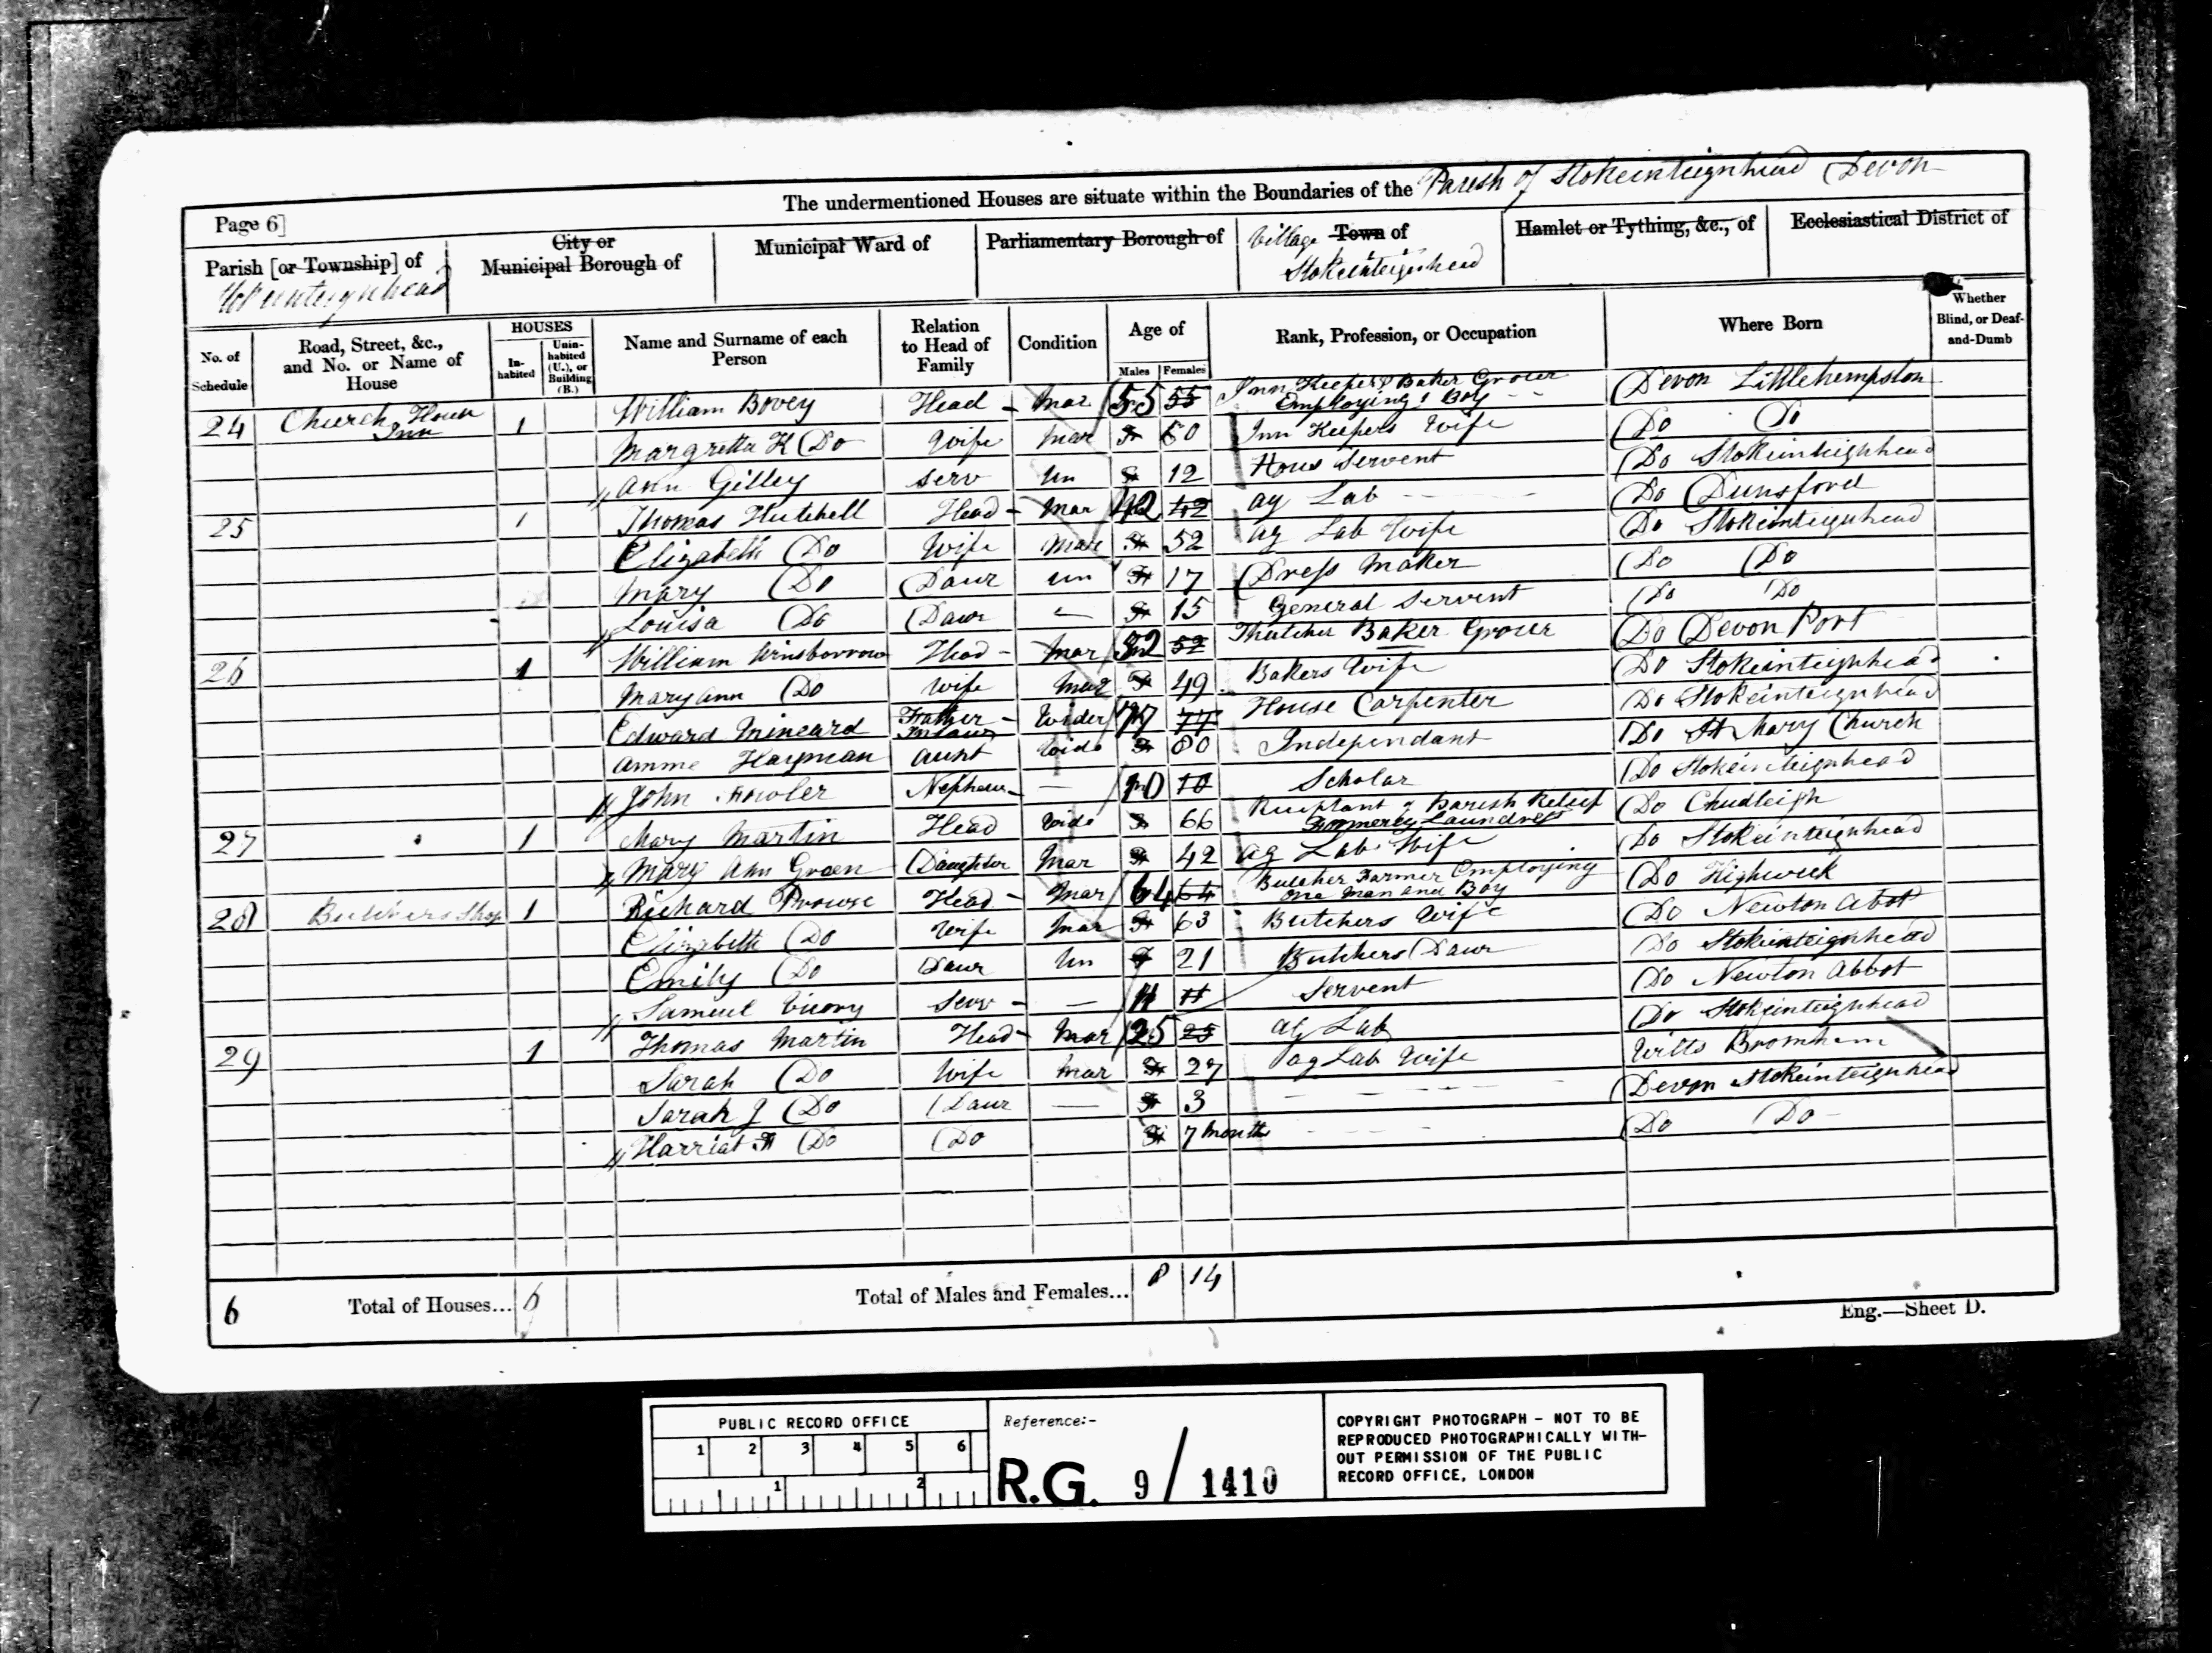 The undermentioned Houses are situate within the Boundaries of the Parish of Stokeinteignhead Devon
Page 6]
Parish [or Township] of Stokeinteignhead
City or Municipal Borough of
Municipal Ward of
Parliamentary Borough of
Village Town of Stokeinteignhead
Hamlet or Tything, &c., of
Ecclesiastical District of
No. of Schedule
Road, Street, &c., and No. or Name of House
HOUSES
In-habited
Unin-habited (U.), or Building (B.)
Name and Surname of each Person
Relation to Head of Family
Condition
Age of
Males
Females
Rank, Profession, or Occupation
Where Born
Whether Blind, or Deaf-and-Dumb
24 Church House Inn 1 William Bovey Head - Mar 55 55 Inn Keeper & Baker Grocer Employing 1 Boy Devon Littlehempston
Margretta H Do Wife Mar 60 Inn Keepers Wife Do Do
Ann Gilley Serv Un 12 Hous Servent Do Stokeinteighhead
25 1 Thomas Hutchell Head - Mar 42 42 ag Lab Do Dunsford
Elizabeth Do Wife Mar 52 ag Lab Wife Do Stokeinteignhead
Mary Do Daur un 17 Dress Maker Do Do
Louisa Do Daur — 15 General Servent Do Do
26 1 William Winsborrow Head - Mar 52 52 Thatcher Baker Grocer Do Devon Port
Mary ann Do Wife Mar 49 Bakers Wife Do Stokeinteignhead
Edward Mineard Father In Law - Wider 77 77 House Carpenter Do Stokeinteignhead
Amme Hayman Aunt Wido 80 Independant Do St Mary Church
John Fowler Nephew - — 10 10 Scholar Do Stokeinteignhead
27 1 Mary Martin Head Wido 66 Reciptant of Parish Relief Formerly Laundress Do Chudleigh
Mary Ann Green Daughter Mar 42 ag Lab Wife Do Stokeinteignhead
28 Butchers Shop 1 Richard Prowse Head - Mar 64 64 Butcher Farmer Employing One Man and Boy Do Highweek
Elizabeth Do Wife Mar 63 Butchers Wife Do Newton abot
Emily Do Daur Un 21 Butchers Daur Do Stokeinteignhead
Samuel Serv - — 11 11 Servent Do Newton abbot
29 1 Thomas Martin Head - Mar 25 25 ag Lab Do Stokeinteignhead
Sarah Do Wife Mar 27 ag Lab Wife Wilts Bromham
Sarah J Do Daur — 3 Devon Stokeinteignhead
Harriat Do Do 7 months Do Do
6 Total of Houses... 6 Total of Males and Females... 8 14
Eng.—Sheet D.
PUBLIC RECORD OFFICE
1 2 3 4 5 6
1 2
Reference:-
R.G. 9 / 1410
COPYRIGHT PHOTOGRAPH - NOT TO BE
REPRODUCED PHOTOGRAPHICALLY WITH-
OUT PERMISSION OF THE PUBLIC
RECORD OFFICE, LONDON